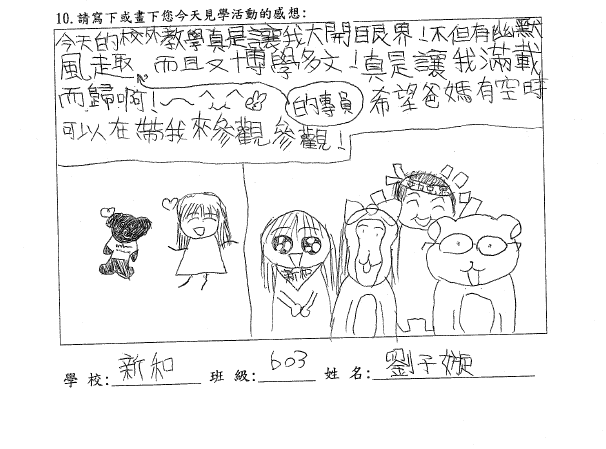 10. 請寫下或畫下您今天見學活動的感想:
今天的校外教學真是讓我大開目艮界!不但有幽默
風走取 而且又博學多文!真是讓我滿載
的專員
而歸啊! 希望爸媽有空時
可以在帶我來參觀參觀!
新和
學校: 新和 班級: 603 姓名: 劉子嫙